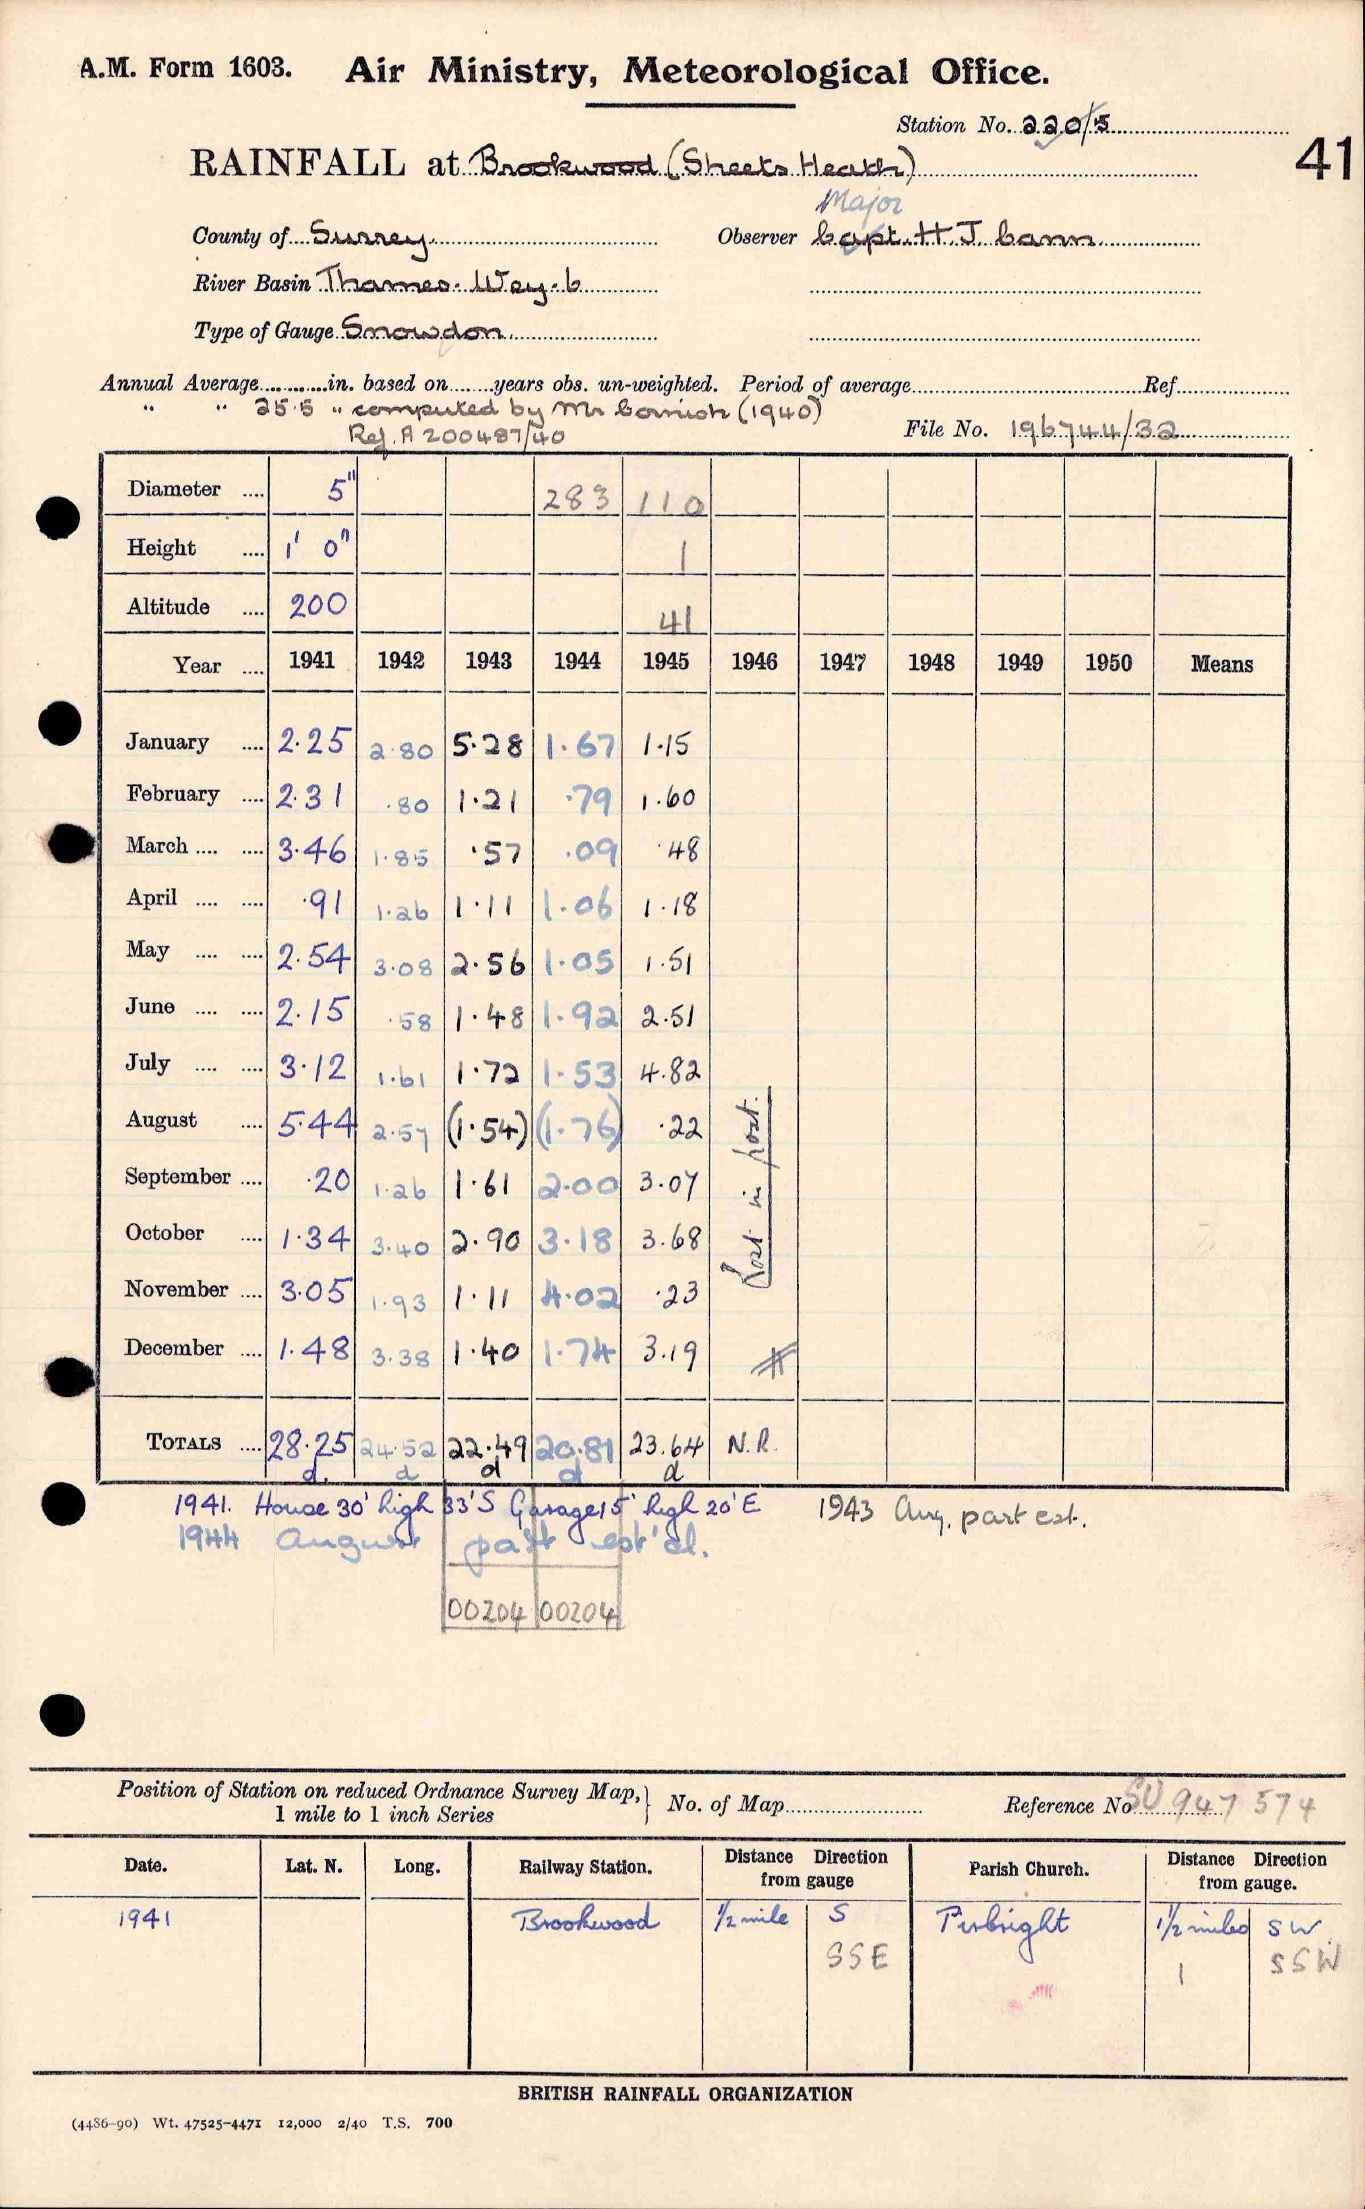 A.M. Form 1603. Air Ministry, Meteorological Office.
Station No. 220/5
41
RAINFALL at Brookwood (Sheets Heath)
Major
County of Surrey Observer Capt. H J Cann
River Basin Thames. Wey. b
Type of Gauge Snowdon
Annual Average in. based on years obs. un-weighted. Period of average Ref.
" " 25.5 " computed by Mr Cornish (1940)
Ref. A 200487/40
File No. 196744/32
Diameter 5" 283 110
Height 1' 0" 1
Altitude 200 41
Year 1941 1942 1943 1944 1945 1946 1947 1948 1949 1950 Means
January 2.25 2.80 5.28 1.67 1.15
February 2.31 .80 1.21 .79 1.60
March 3.46 1.85 .57 .09 .48
April .91 1.26 1.11 1.06 1.18
May 2.54 3.08 2.56 1.05 1.51
June 2.15 .58 1.48 1.92 2.51
July 3.12 1.61 1.72 1.53 4.82
August 5.44 2.57 (1.54) (1.76) .22
September .20 1.26 1.61 2.00 3.07
October 1.34 3.40 2.90 3.18 3.68
November 3.05 1.93 1.11 4.02 .23
December 1.48 3.38 1.40 1.74 3.19
Lost in post.
TOTALS 28.25 24.52 22.49 20.81 23.64 N.R.
d. d d d d
1941. House 30' high 33' S Garage 15' high 20' E 1943 Aug. part est.
1944 August part est'd.
00204 00204
Position of Station on reduced Ordnance Survey Map,
1 mile to 1 inch Series
No. of Map Reference No SU 947 574
Date. Lat. N. Long. Railway Station. Distance Direction from gauge Parish Church. Distance Direction from gauge.
1941 Brookwood 1/2 mile S Pirbright 1 1/2 miles SW.
SSE 1 SSW
BRITISH RAINFALL ORGANIZATION
(4486-90) Wt. 47525-4471 12,000 2/40 T.S. 700